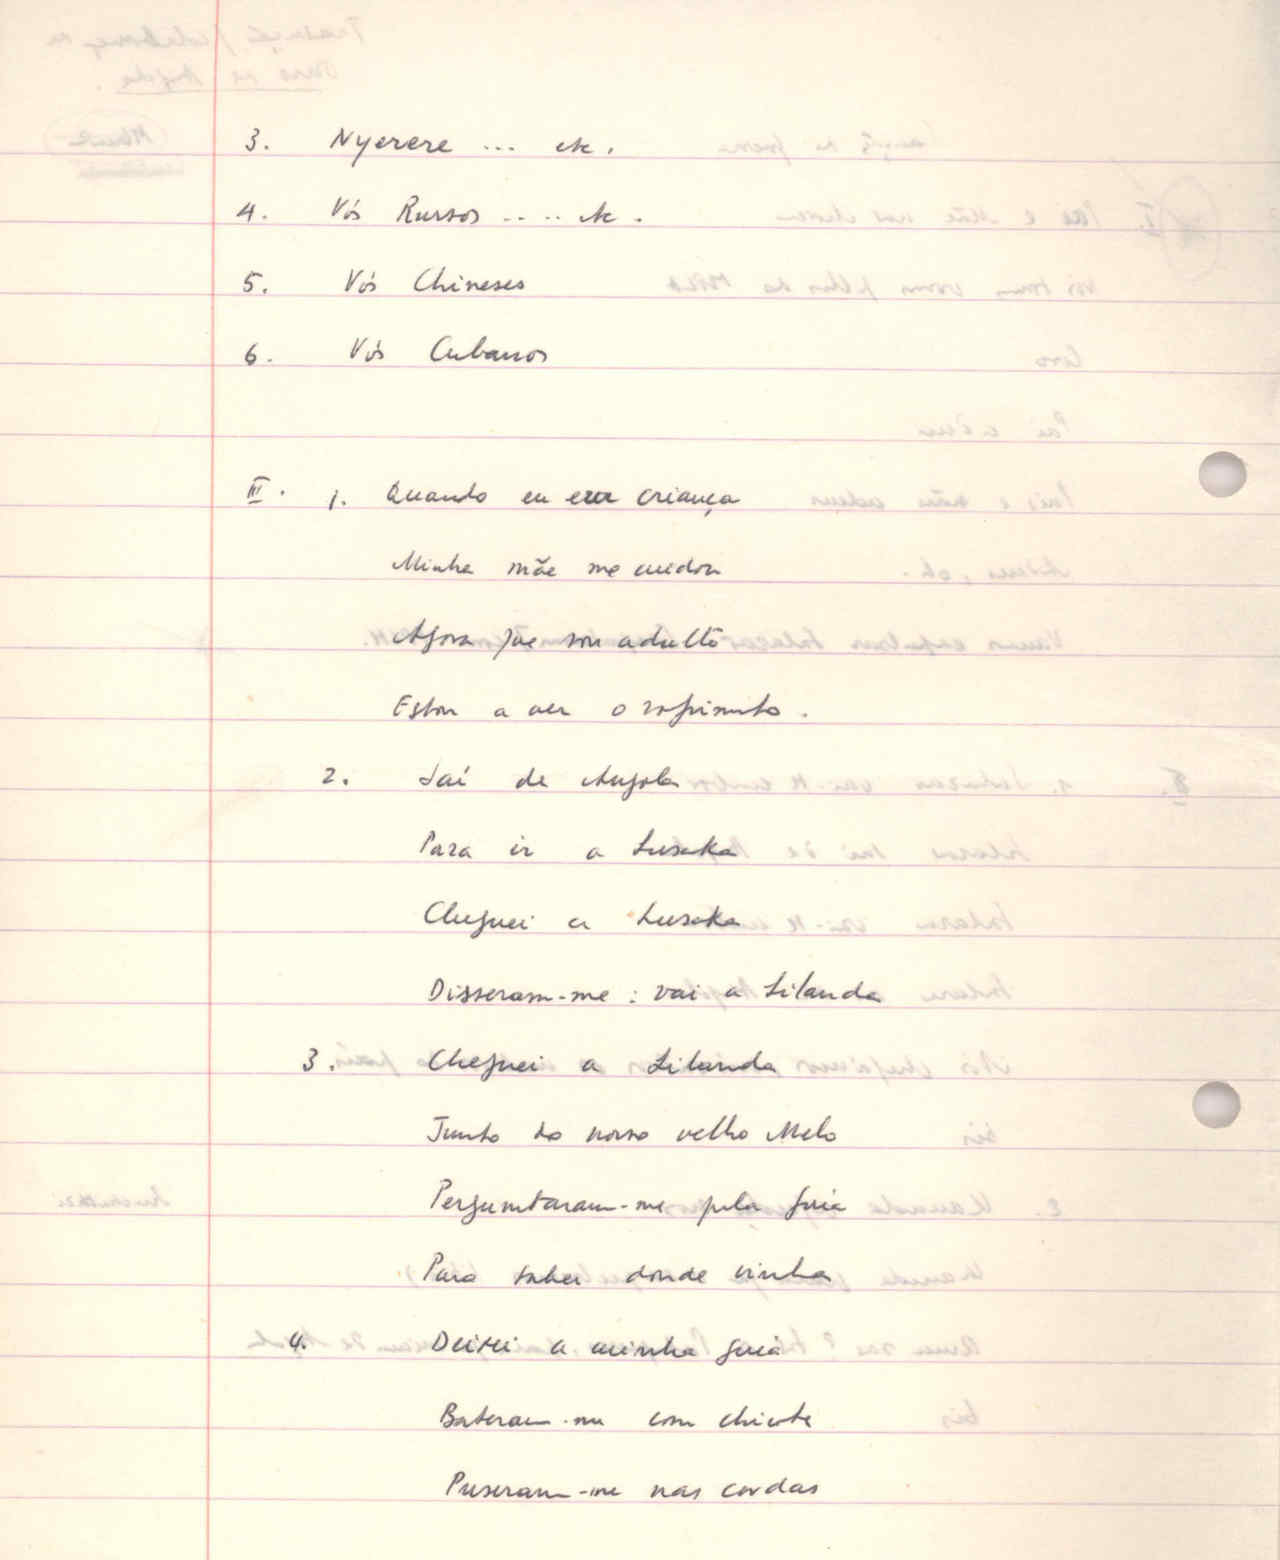 3. Nyerere ... etc.
4. Vós Russos .... etc.
5. Vós Chineses
6. Vós Cubanos
III. 1. Quando eu era criança
Minha mãe me cuidou
Agora que sou adulto
Estou a ver o sofrimento.
2. Saí de Angola
Para ir a Lusaka
Cheguei a Lusaka
Disseram-me : vai a Lilanda
3. Cheguei a Lilanda
Junto do nosso velho Melo
Perguntaram-me pela guia
Para saber donde vinha
4. Deixei a minha guia
Bateram-me com chicote
Puseram-me nas cordas